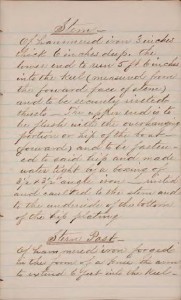 Stem
Of hammered iron 3 inches
thick 6 inches deep the
lower end to run 5 ft 6 inches
into the Keel (measured from
the forward face of stem)
and to be securely riveted
there The upper end is to
be flush with the overhanging
portion or lip of the boat
(forward) and to be fasten-
ed to said lip and made
water tight by a
angle iron riveted
and caulked to the stem and
to the underside of the bottom
of the lip plating
Stern Post
Of hammered iron forged
in the form of a knee the arm
to extend 6 feet into the Keel